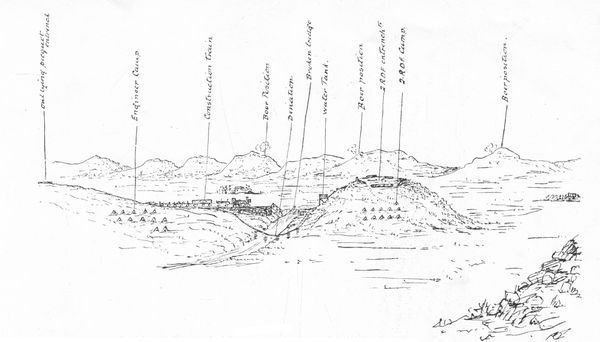 Outlying picquet
entrench
Engineer Camp
Construction train
Boer Position
Deviation
Broken bridge
Water Tank.
Boer position
2.R.D.F. entrencht
2.R.D.F. Camp.
Boer position.